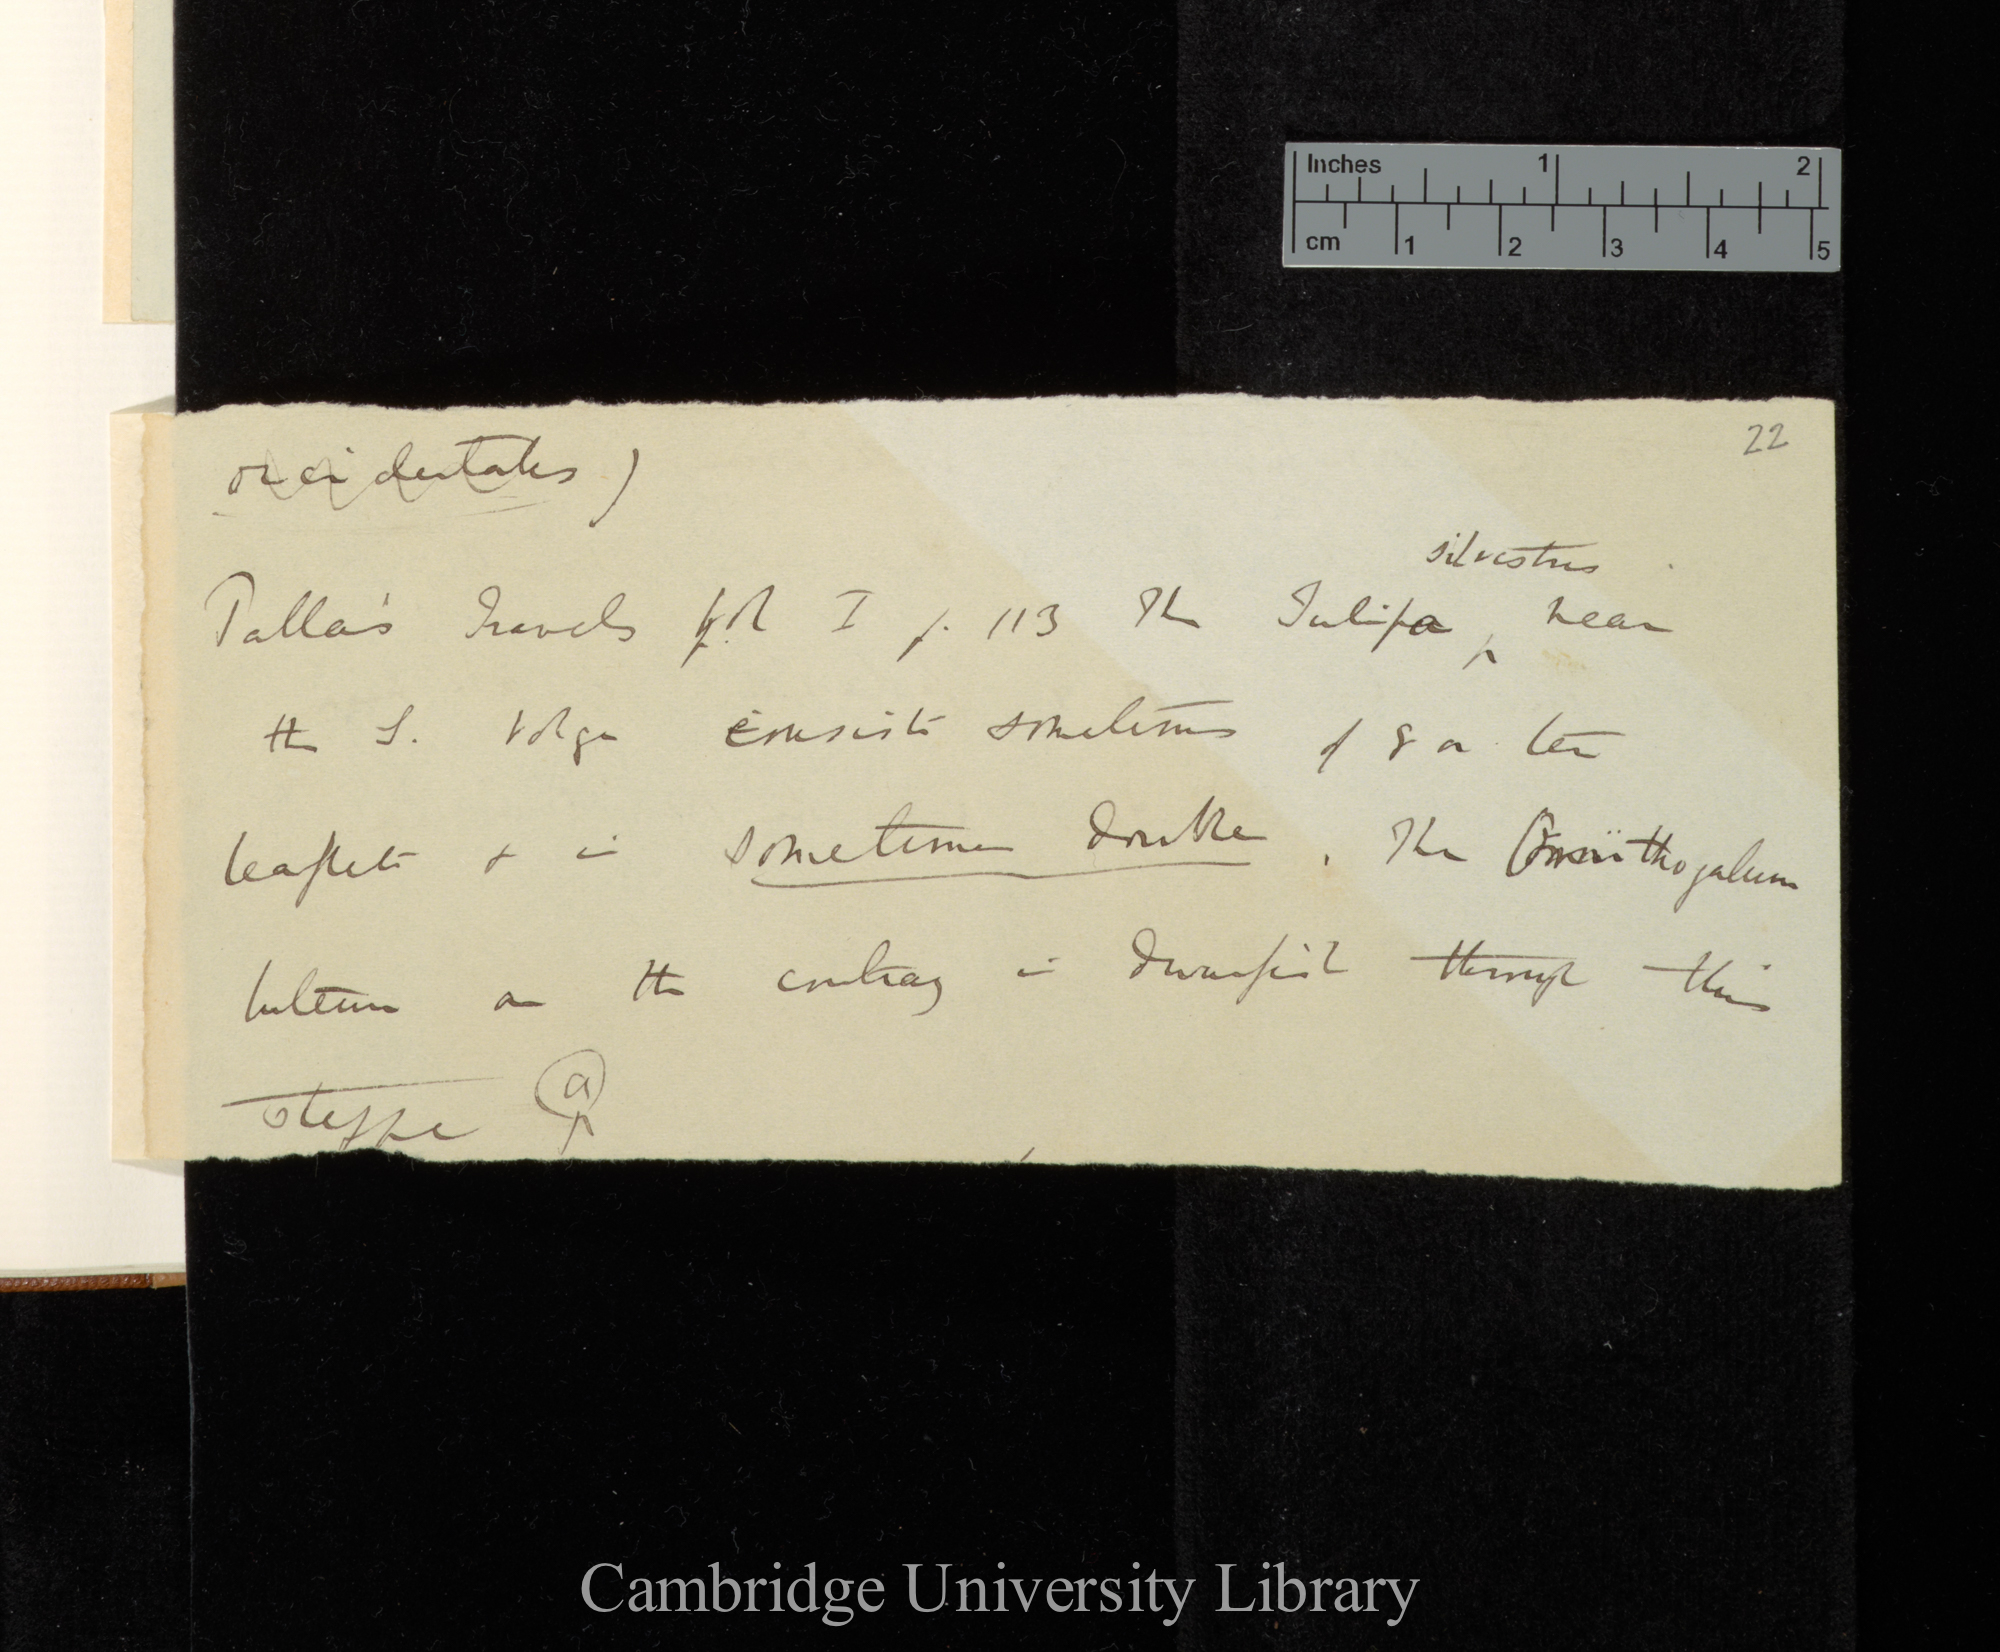 Inches 1 2
cm 1 2 3 4 5
22
occidentales)
silvestris
Palla's Travels Vol I p. 113 The Tulipa ^ near
the S. Volga consists sometimes of 8 or ten
leaflets & is sometimes double. The Ornithogalum
luteum on the contrary is dwarfish through this
steppe a
Cambridge University Library